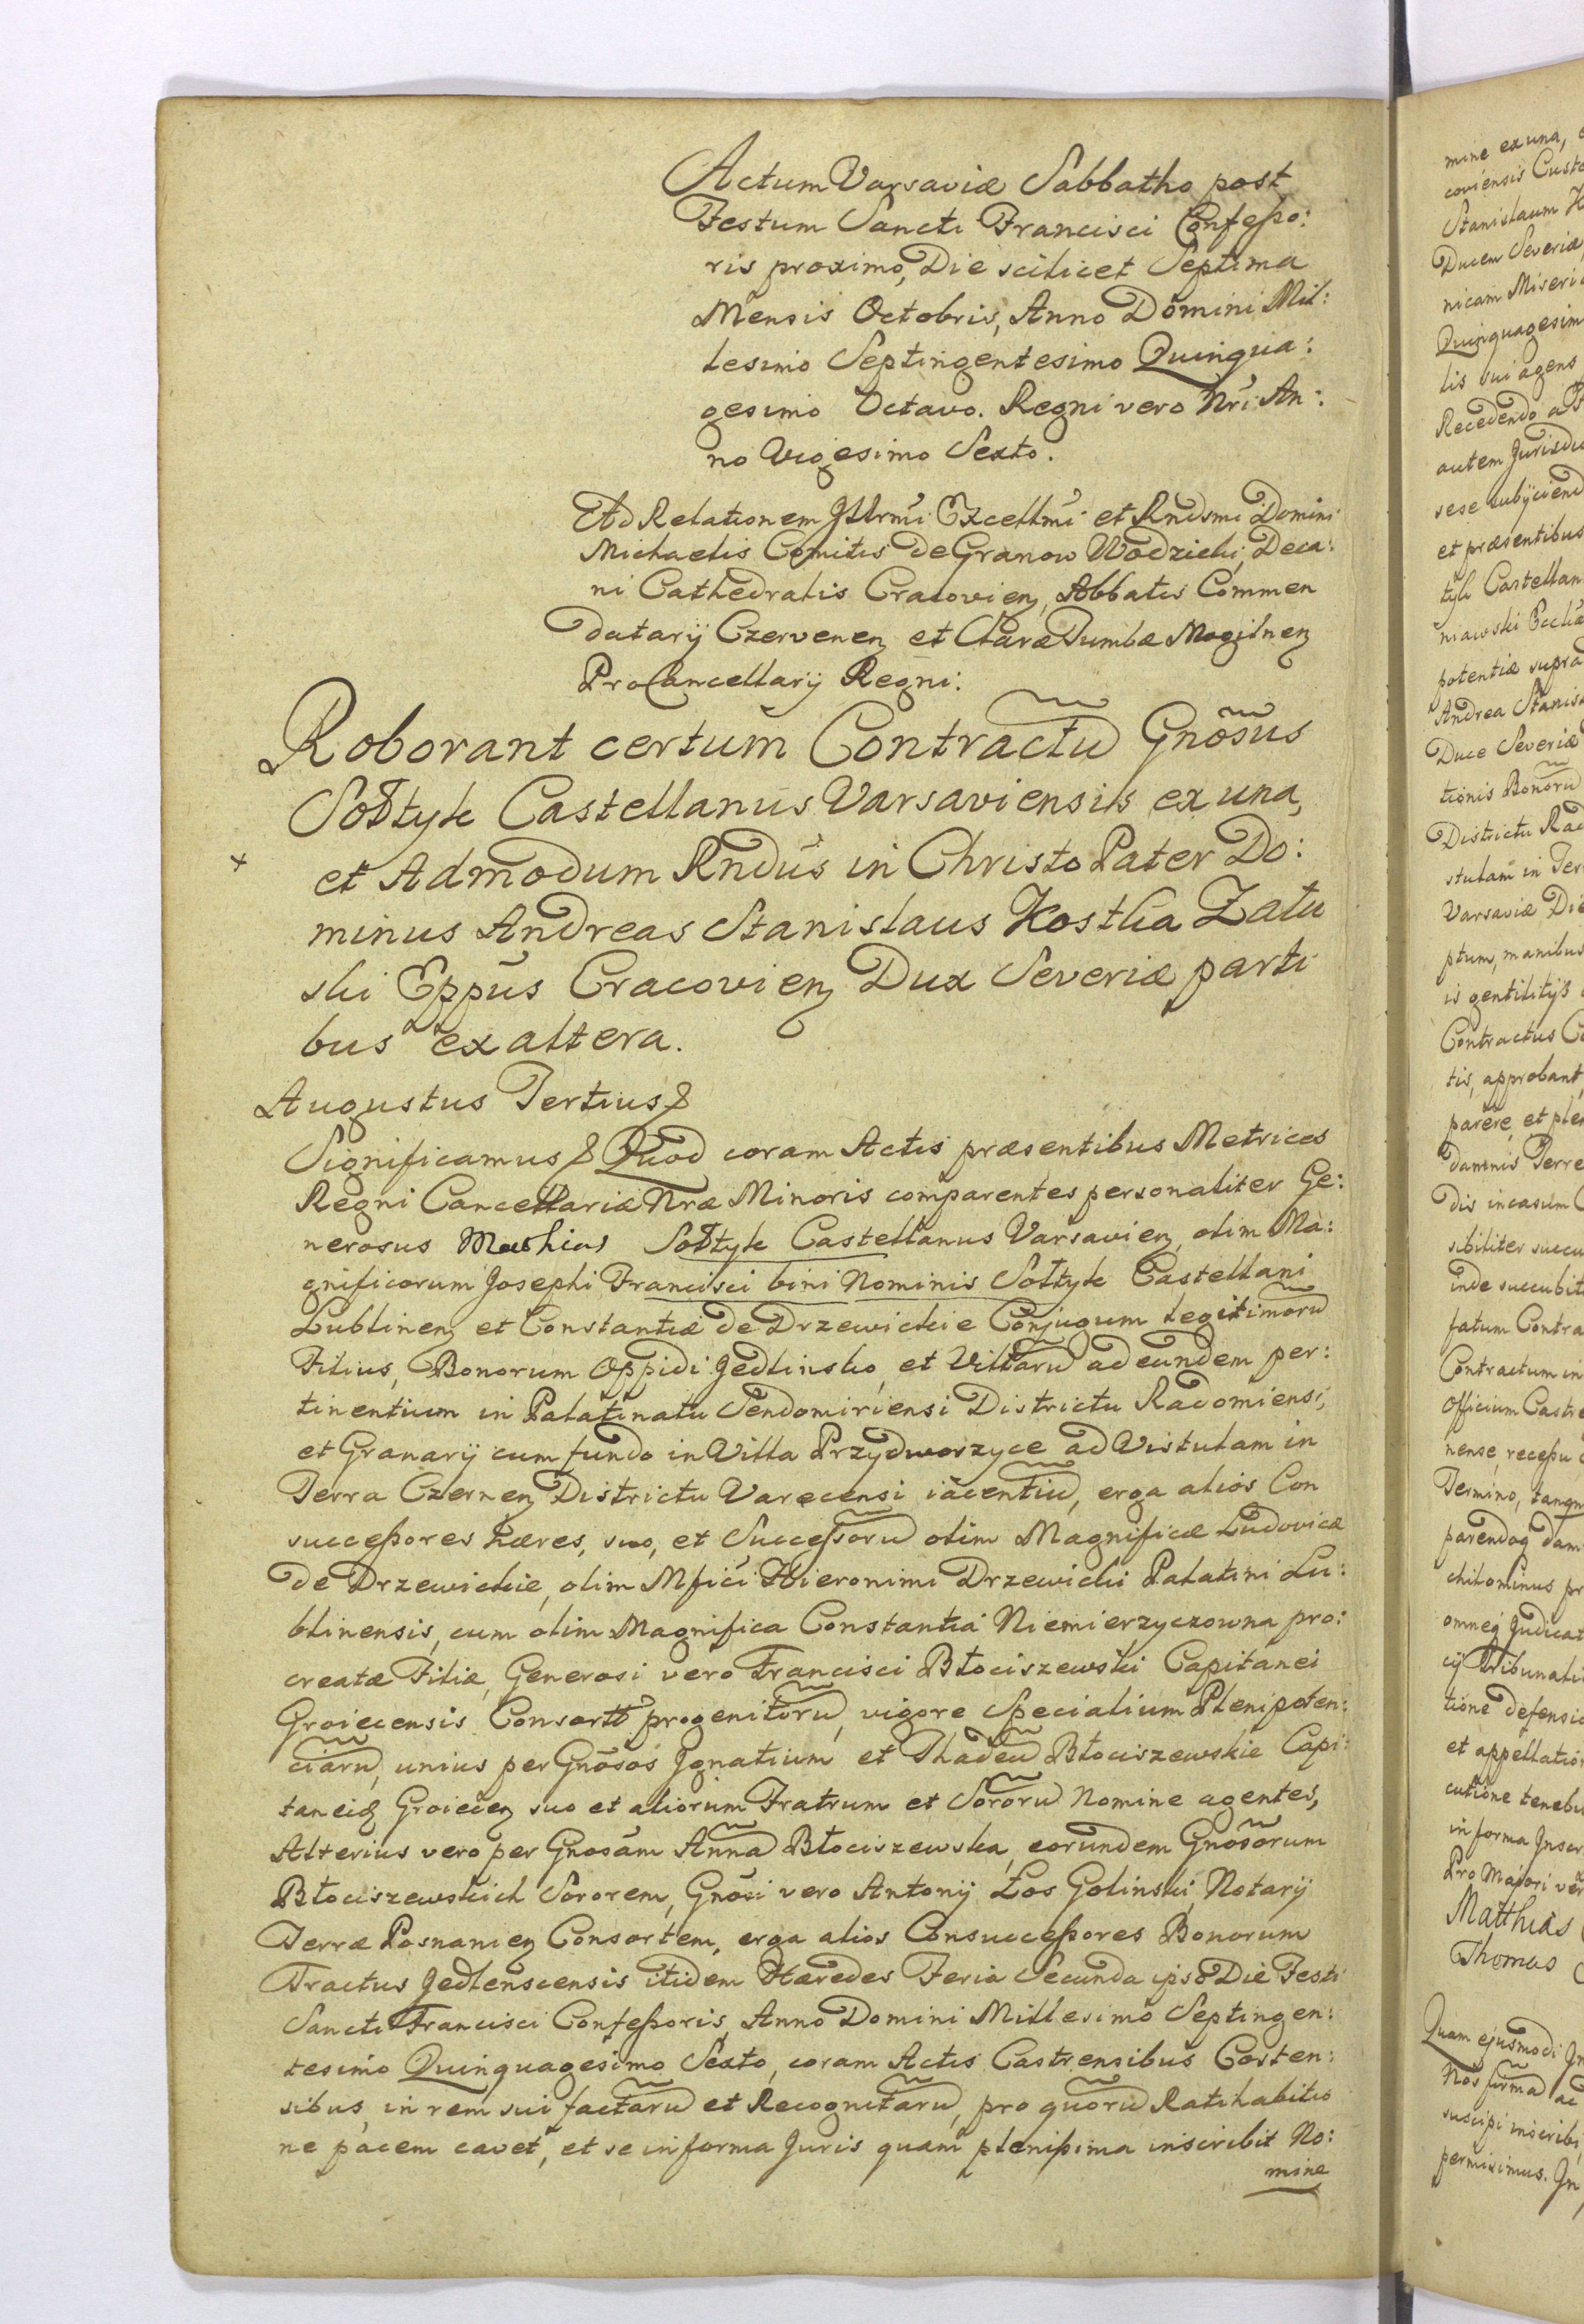 Actum Varsaviæ Sabbatho post
Festum Sancti Francisci Confeßo:
ris proximo, Die scilicet Septima
Mensis Octobris, Anno Domini Mil:
lesimo Septingentesimo Quinqua:
gesimo Octavo. Regni vero Nri An:
no Vigesimo Sexto.
Ad Relationem Jllrmi Excellmi et Rndsmi Domini
Michaelis Comitis de Granow Wodzicki, Deca:
ni Cathedralis Cracovien, Abbatis Commen
datarij Czervenen et Claræ Tumbæ Mogilnen
ProCancellarij Regni:
Roborant certum Contractu Gnosus
Sołtyk Castellanus Varsaviensis ex una,
et Admodum Rndus in Christo Pater Do:
minus Andreas Stanislaus Kostka Zału
ski Eppus Cracovien Dux Severiæ parti
bus ex altera.
Augustus Tertius &
Significamus & Quod coram Actis præsentibus Metrices
Regni Cancellariæ Nræ Minoris comparentes personaliter Ge:
nerosus Mathias Sołtyk Castellanus Varsavien, olim Ma:
gnificorum Josephi Francisci bini Nominis Sołtyk Castellani
Lublinen et Constantiæ de Drzewickie Conjugum legitimoru
Filius, Bonorum Oppidi Jedlinsko, et Villaru ad eundem per:
tinentium in Palatinatu Sendomiriensi Districtu Radomiensi,
et Granarij cum fundo in Villa Przydworzyce ad Vistulam in
Terra Czernen Districtu Varecensi iacentiu, erga alios Con
succeßores hæres, suo, et Succeßoru olim Magnificæ Ludovicæ
de Drzewickie, olim Mfici Hieronimi Drzewicki Palatini Lu:
blinensis, cum olim Magnifica Constantia Niemierzyczowna pro:
creatæ Filiæ, Generosi vero Francisci Błociszewski Capitanei
Groiecensis Consortis progenitoru, vigore Specialium Plenipoten:
ciaru, unius per Gnosos Jgnatium et Thadeu Błociszewskie Capi:
taneid Groiecen suo et aliorum Fratrum et Sororu Nomine agentes,
Alterius vero per Gnosam Anna Błociszewska, eorundem Gnosorum
Błociszewskich Sororem, Gnosi vero Antonij Łos Golinski, Notarij
Terræ Posnanien Consortem, erga alios Consucceßores Bonorum
Tractus Jedlenscensis itidem Hæredes Feria Secunda ipso Die Festi
Sancti Francisci Confeßoris, Anno Domini Millesimo Septingen:
tesimo Quinquagesimo Sexto, coram Actis Castrensibus Corten:
sibus, in rem sui factaru et Recognitaru, pro quoru Ratihabitio
ne pacem cavet, et se in forma Juris quam plenißima inscribit No:
mine
mine ex una,
coviensis Custo
Stanislaum
Ducem Severiæ
nicam Miseri
Quinquagesim
lis sui agens
Recedendo a
autem Jurisdic
sese subijciend
et præsentibus
tyk Castellan
niawski Eccliæ
potentiæ supra
Andrea Stanis
Duce Severiæ
tionis Bonoru
Districtu Rad
stulam in Ter
Varsaviæ Die
ptum, manibus
is gentilitijs
Contractus
tis, approbant,
parere, et plen
damnis Terre
dis in casum
sibiliter succu
inde succubit
fatum Contra
Contractum in
Officium Castre
nense, receßu
Termino, tanqm
parendoq dam
chilominus pr
omneq Judicat
cij Tribunali
tione defensio
et appellatio
cutione tenebu
in forma Jnscr
Pro Majori ve
Matthias
Thomas
Quam ejusmodi Jn
Nos firma ac
suscipi inscribi
permisimus. Jn